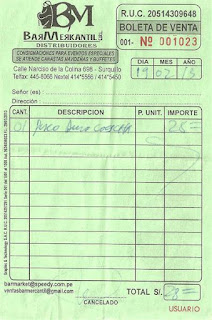 BM
BARMERKANTIL SRL
DISTRIBUIDORES
CONSIGNACIONES PARA EVENTOS ESPECIALES
SE ATIENDE CANASTAS NAVIDEÑAS Y BUFFETES
Calle Narciso de la Colina 698 - Surquillo
Telfax: 445-8066 Nextel 414*5566 / 414*5450
R.U.C. 20514309648
BOLETA DE VENTA
001- Nº 001023
DIA MES AÑO
19 02 13
Señor (es) :
Dirección :
CANT. DESCRIPCION P. UNIT. IMPORTE
01 Pisco 28=
barmarket@speedy.com.pe
ventasbarmercantil@gmail.com
TOTAL S/. 28=
CANCELADO
USUARIO